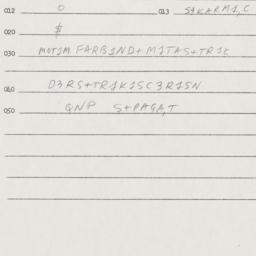 012 0 013 S1KARM1,C
020 $
030 MOT1M FARB1ND+ M1TAS+TR1K
040 D3RS+TR1K1SC3R1SN
050 QNP S+PAGA,T